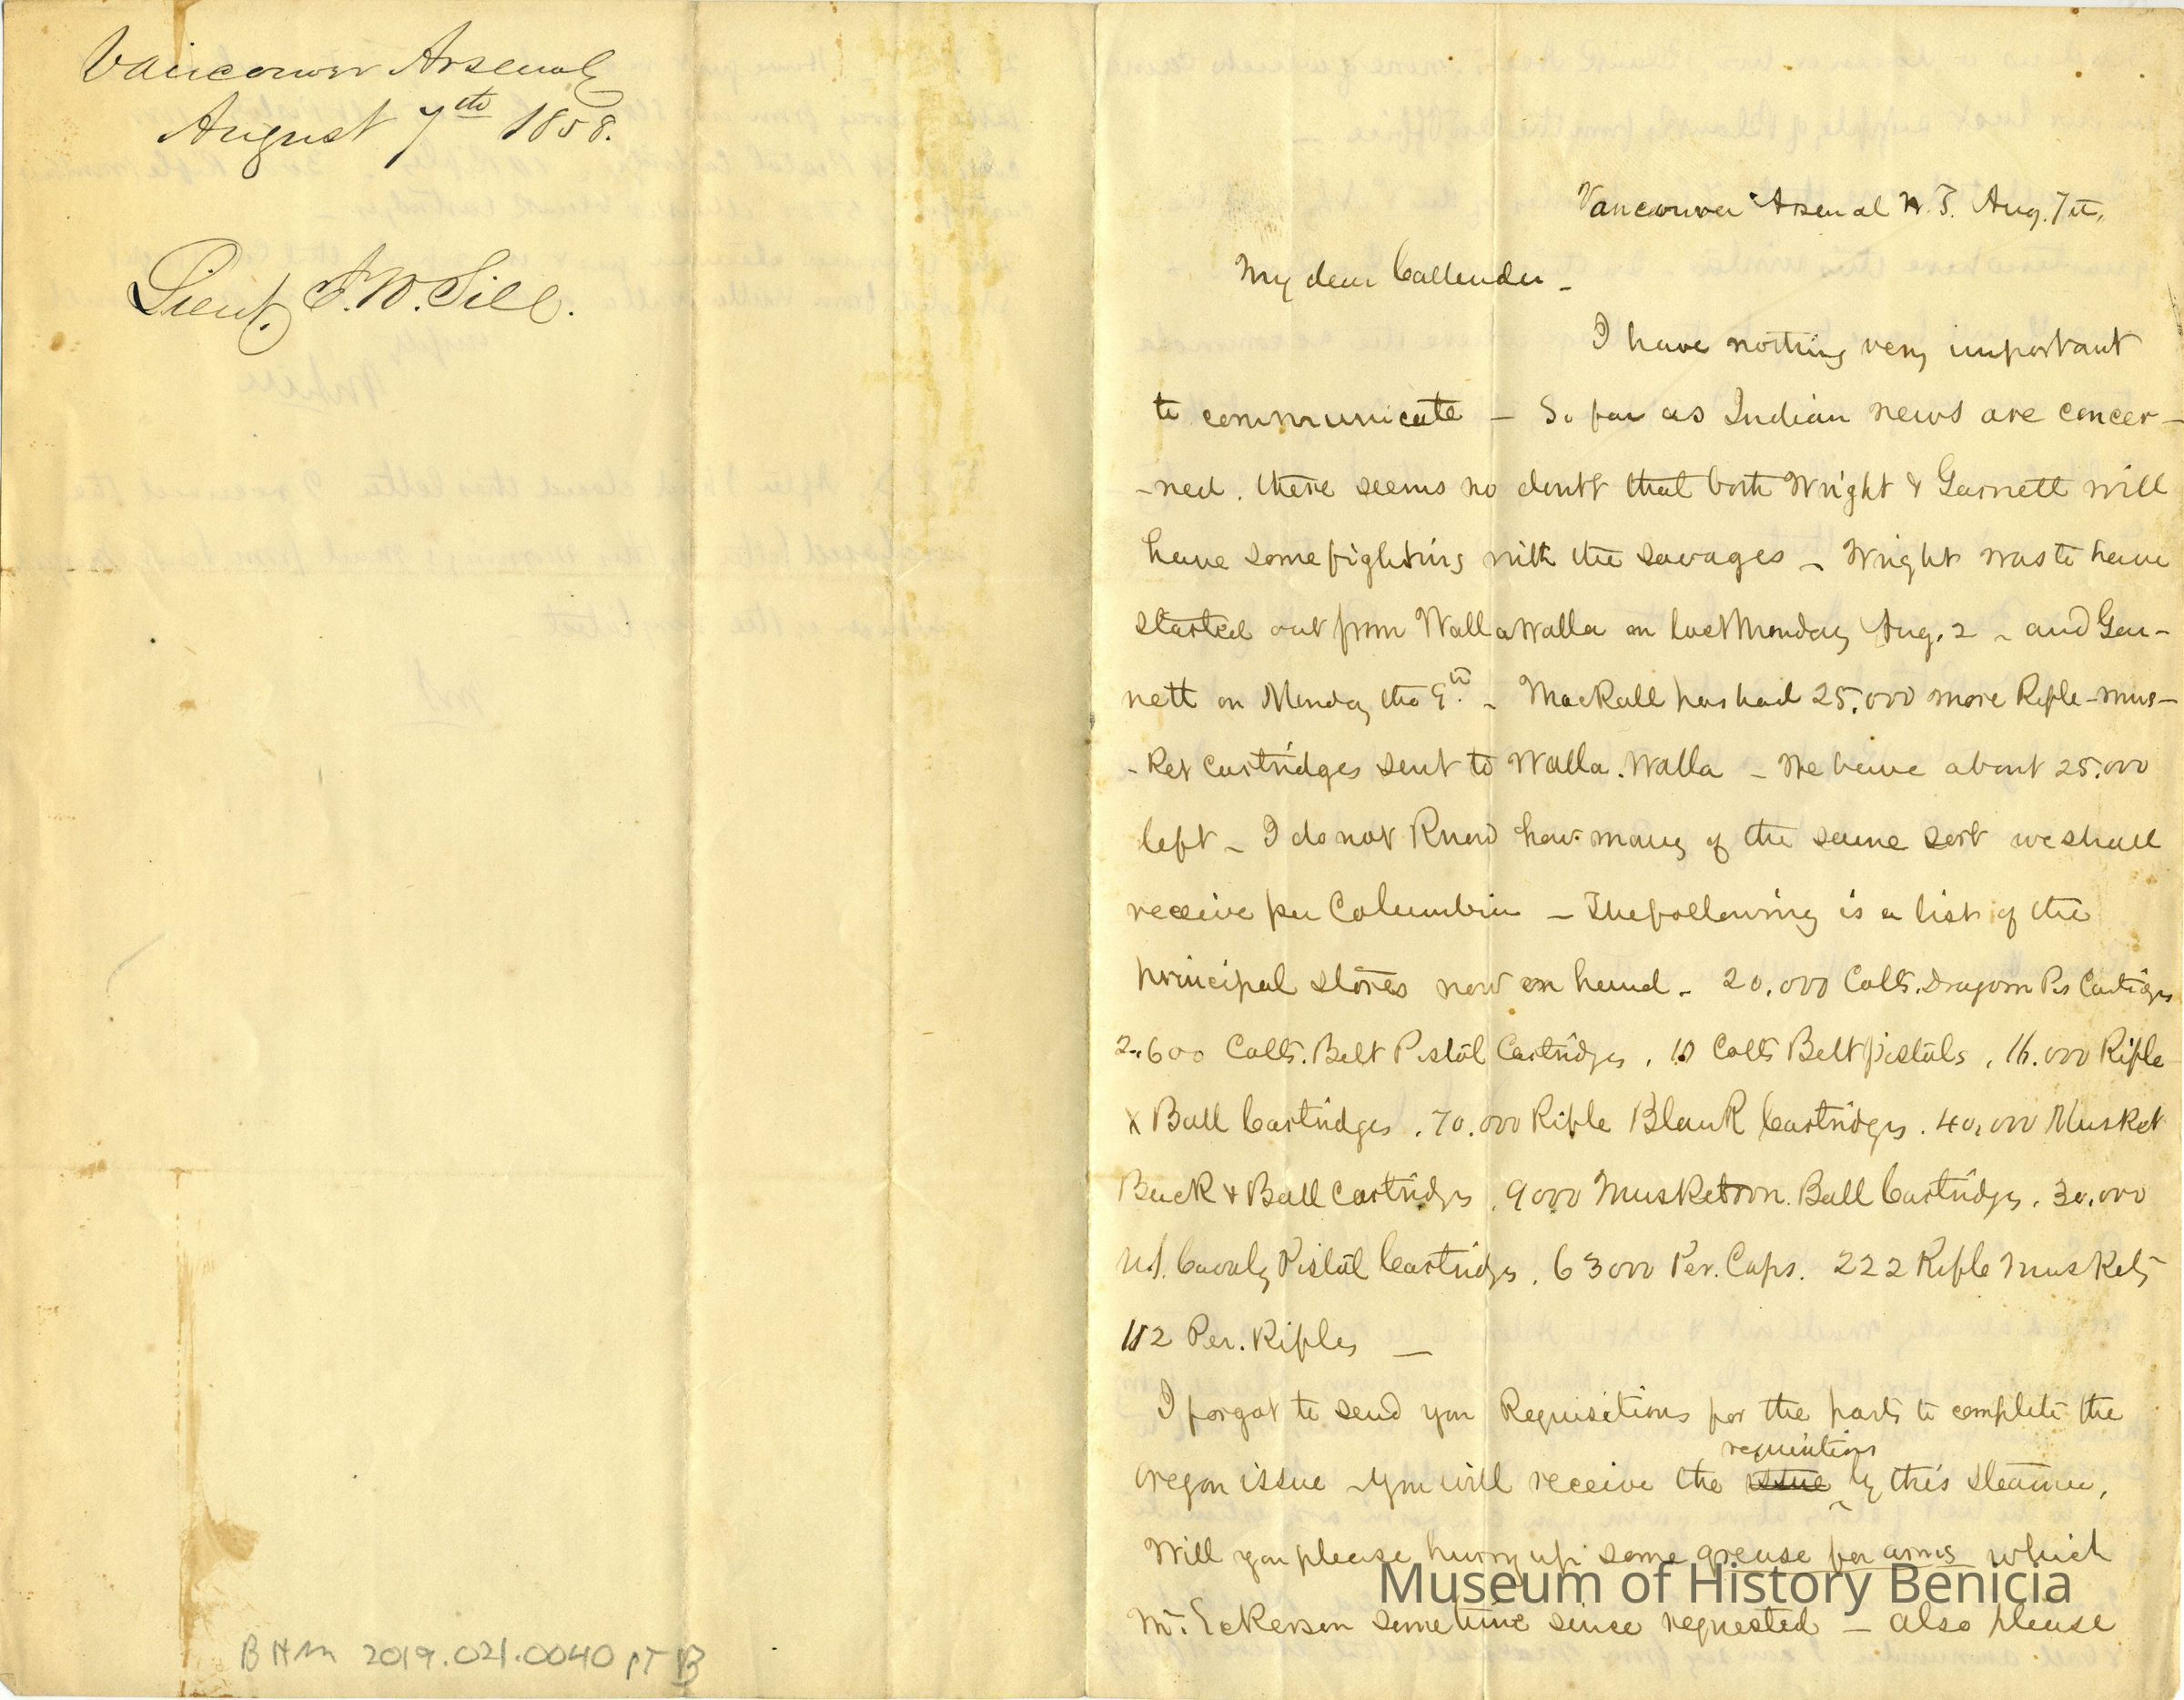 Vancouver Arsenal
August 7th 1858.
Lieut. J. W. Sill.
BHM 2019.021.0040 pt B
Vancouver Arsenal W.T. Aug. 7th,
My dear Callender –
I have nothing very important
to communicate – So far as Indian news are concer-
-ned. there seems no doubt that both Wright & Garnett will
have some fighting with the savages – Wright was to have
started out from Walla Walla on last Monday Aug. 2 – and Gar-
nett on Monday the 9th. – Mackall has had 25.000 more Rifle-mus-
-ket Cartridges sent to Walla.Walla – We have about 25.000
left – I do not know how many of the same sort we shall
receive per Columbia – The following is a list of the
principal stores now on hand – 20.000 Colts.Dragoon Ps Cartridges
2.600 Colts.Belt Pistol Cartridges, 10 Colts Belt pistols, 16.000 Rifle
x Ball Cartridges, 70.000 Rifle Blank Cartridges. 40,000 Musket
Buck & Ball Cartridges, 9000 Musketoon.Ball Cartridges, 30.000
U.S. Cavalry Pistol Cartridges, 63000 Per. Caps. 222 Rifle Muskets
112 Per. Rifles —
I forgot to send you Requisitions for the parts to complete the
requisitions
Oregon issue – you will receive the issue by this steamer,
Will you please hurry up some grease for arms which
Mr. Eckerson sometime since requested – also please
Museum of History Benicia